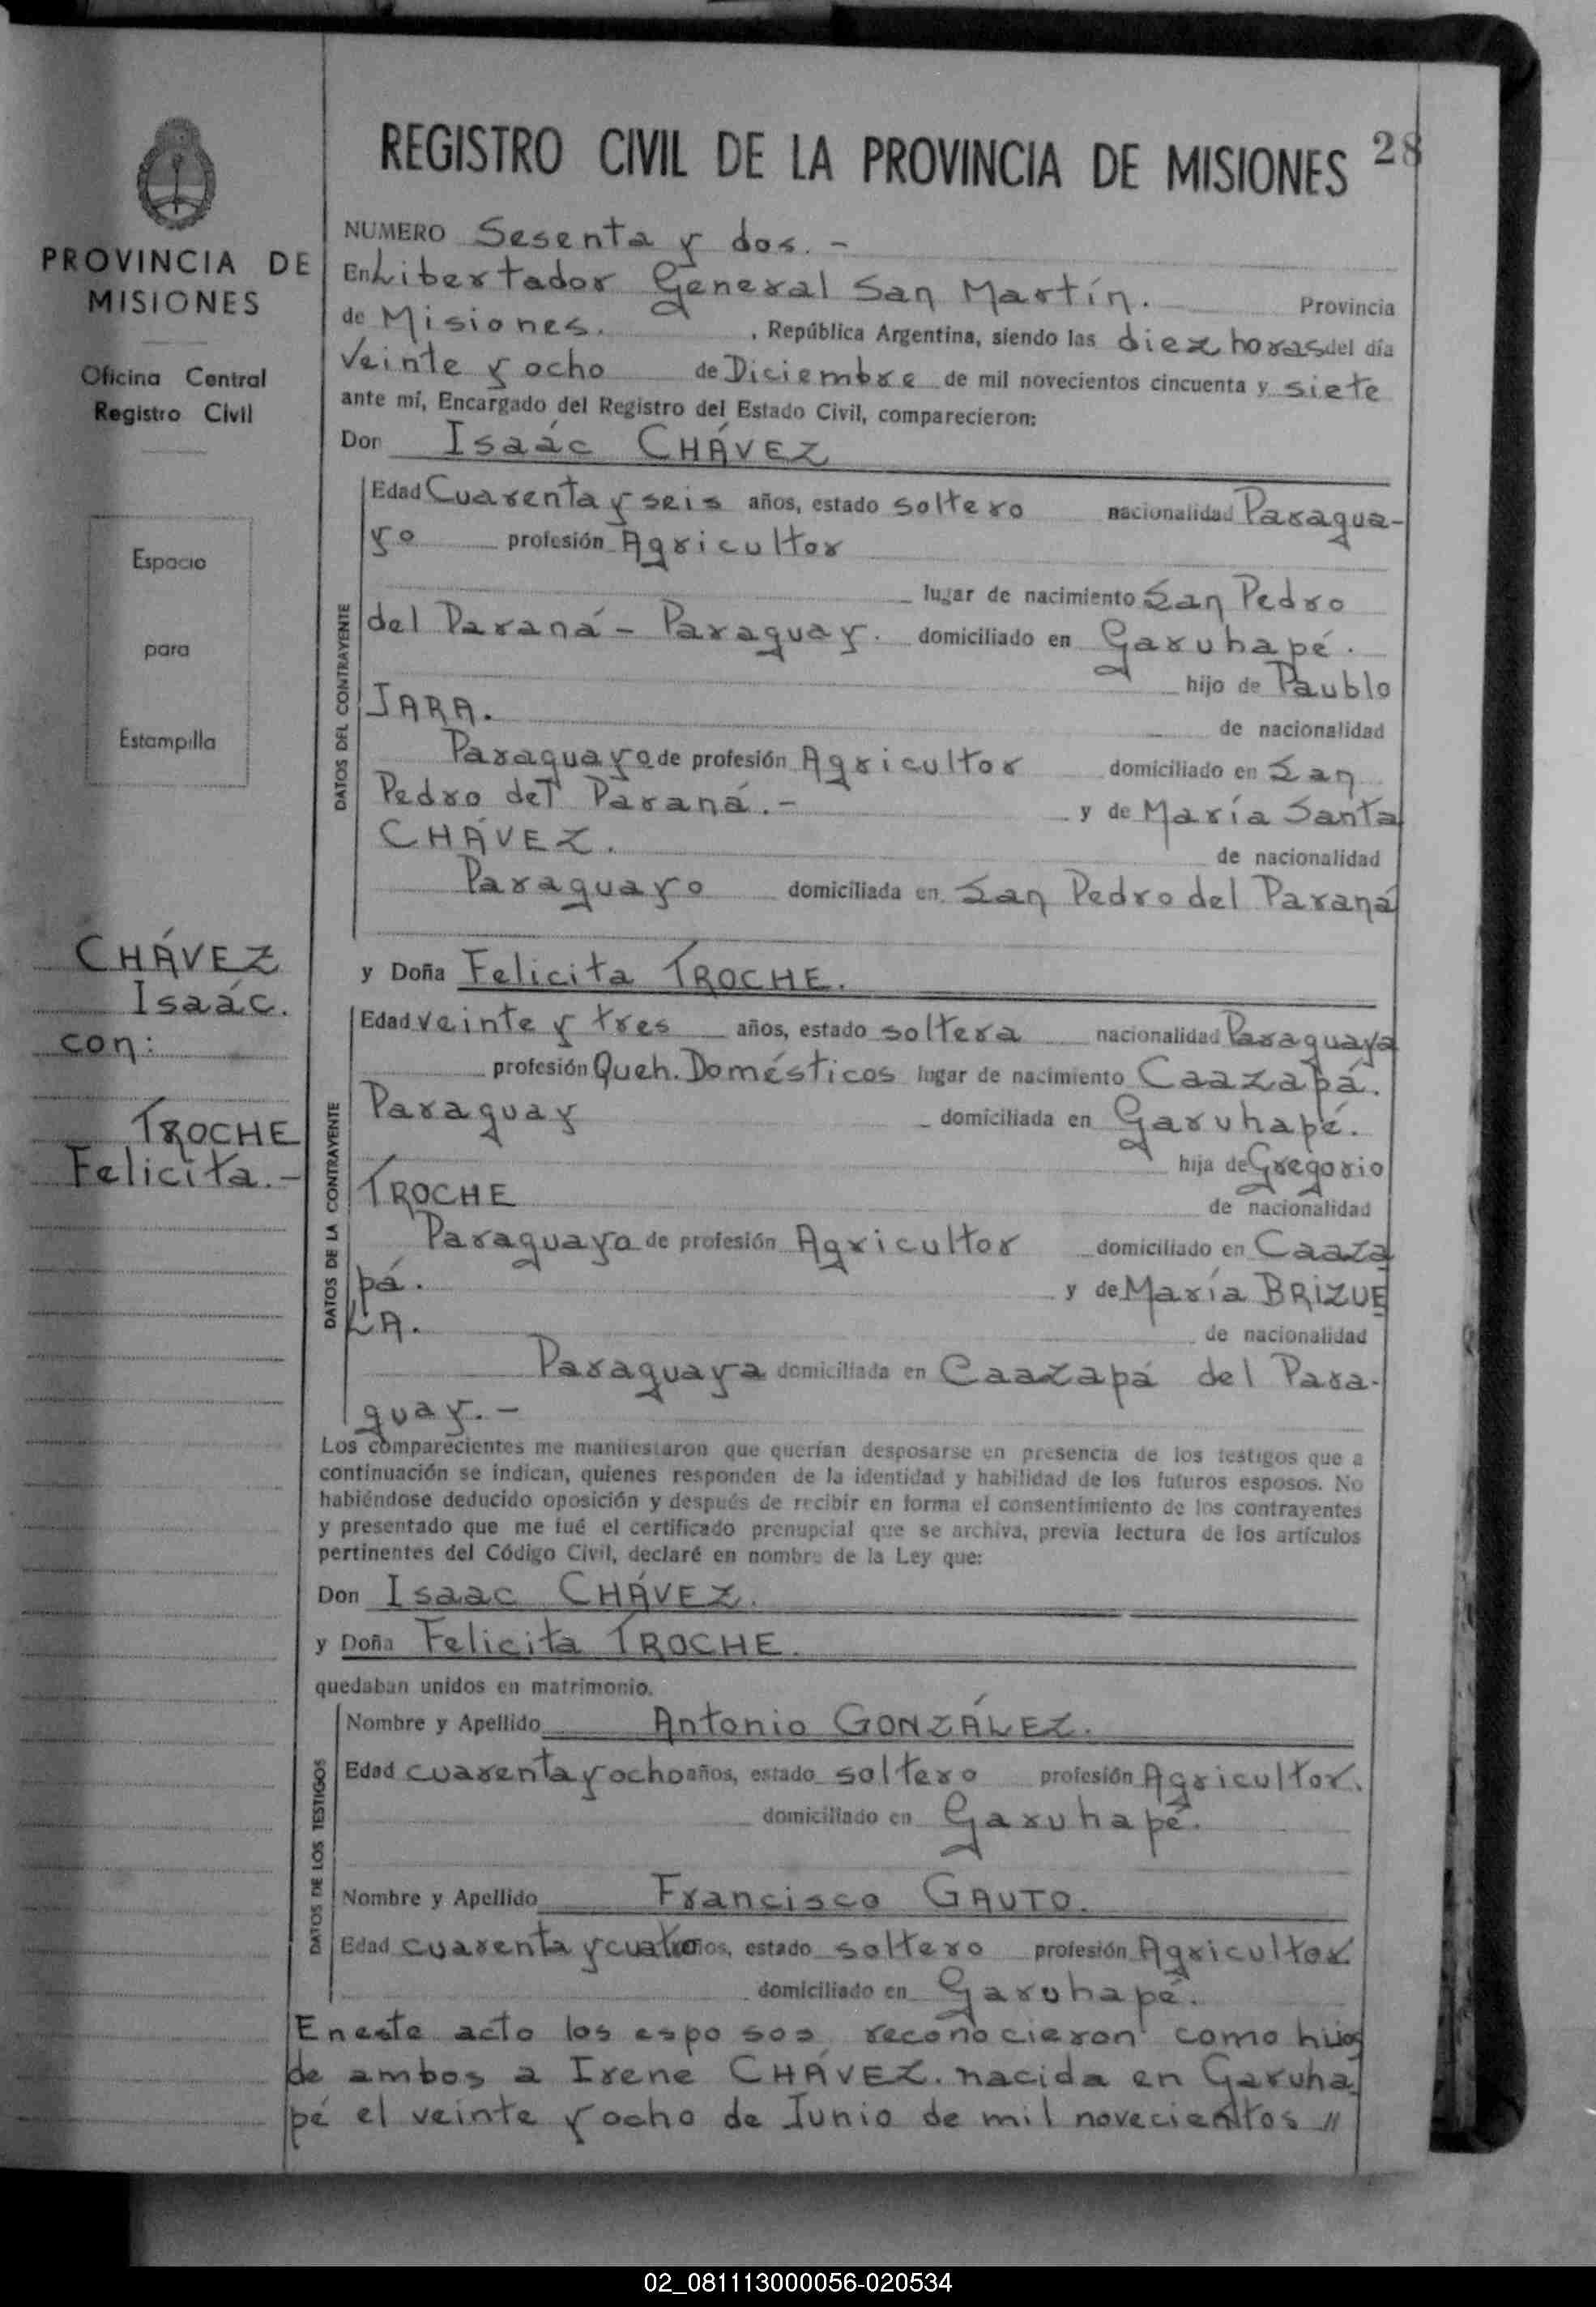 REGISTRO CIVIL DE LA PROVINCIA DE MISIONES 28
PROVINCIA DE
MISIONES
Oficina Central
Registro Civil
Espacio
para
Estampilla
CHÁVEZ
Isaác.
con:
TROCHE
Felicita.-
NUMERO Sesenta y dos.-
En Libertador General San Martín. Provincia
de Misiones. , República Argentina, siendo las diez horas del día
Veinte y ocho de Diciembre de mil novecientos cincuenta y siete
ante mí, Encargado del Registro del Estado Civil, comparecieron:
Don Isaác CHÁVEZ
DATOS DEL CONTRAYENTE
Edad Cuarenta y seis años, estado soltero nacionalidad Paragua-
yo profesión Agricultor
lugar de nacimiento San Pedro
del Paraná - Paraguay. domiciliado en Garuhapé.
hijo de Paublo
JARA.
de nacionalidad
Paraguayo de profesión Agricultor domiciliado en San
Pedro del Paraná.- y de María Santa
CHÁVEZ. de nacionalidad
Paraguayo domiciliada en San Pedro del Paraná
y Doña Felicita TROCHE.
DATOS DE LA CONTRAYENTE
Edad veinte y tres años, estado soltera nacionalidad Paraguaya
profesión Queh. Domésticos lugar de nacimiento Caazapá.
Paraguay domiciliada en Garuhapé.
hija de Gregorio
TROCHE de nacionalidad
Paraguayo de profesión Agricultor domiciliado en Caaza
pá. y de María BRIZUE
LA. de nacionalidad
Paraguaya domiciliada en Caazapá del Para-
guay.-
Los comparecientes me manifestaron que querían desposarse en presencia de los testigos que a
continuación se indican, quienes responden de la identidad y habilidad de los futuros esposos. No
habiéndose deducido oposición y después de recibir en forma el consentimiento de los contrayentes
y presentado que me fué el certificado prenupcial que se archiva, previa lectura de los artículos
pertinentes del Código Civil, declaré en nombre de la Ley que:
Don Isaac CHÁVEZ.
y Doña Felicita TROCHE.
quedaban unidos en matrimonio.
DATOS DE LOS TESTIGOS
Nombre y Apellido Antonio GONZÁLEZ.
Edad cuarenta y ocho años, estado soltero profesión Agricultor.
domiciliado en Garuhapé.
Nombre y Apellido Francisco GAUTO.
Edad cuarenta y cuatro años, estado soltero profesión Agricultor
domiciliado en Garuhapé.
En este acto los esposos reconocieron como hijos
de ambos a Irene CHÁVEZ. nacida en Garuha
pé el veinte y ocho de Junio de mil novecientos //
02_081113000056-020534